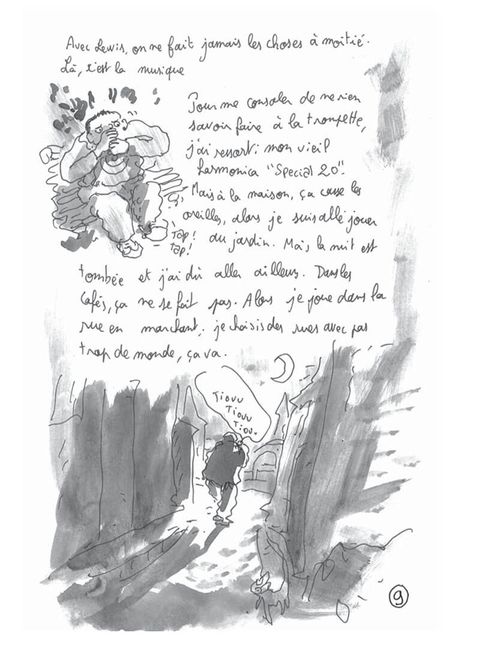 Avec Lewis, on ne fait jamais les choses à moitié.
Là, c'est la musique
Pour me consoler de ne rien
savoir faire à la trompette,
j'ai ressorti mon vieil
harmonica "Special 20".
Mais à la maison, ça casse les
oreilles, alors je suis allé jouer
au jardin. Mais la nuit est
tombée et j'ai dû aller ailleurs. Dans les
cafés, ça ne se fait pas. Alors je joue dans la
rue en marchant. je choisis des rues avec pas
trop de monde, ça va.
Tap!
Tap!
Tiouu
Tiouu
Tiou.
9